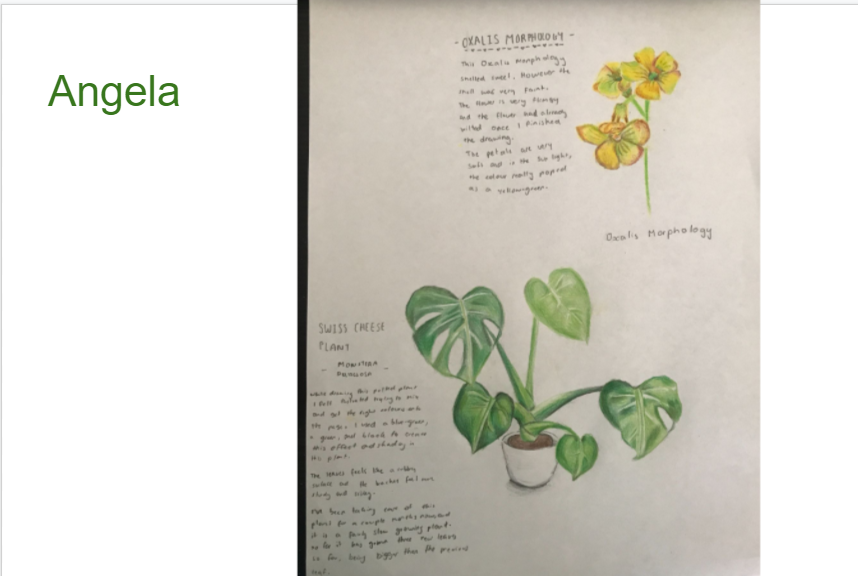 Angela
- OXALIS MORPHOLOGY -
This Oxalis Morphology
smelled sweet. However the
smell was very faint.
The flower is very flimsy
and the flower had already
wilted once I finished
the drawing.
The petals are very
soft and in the sun light,
the colour really popped
as a yellow/green.
Oxalis Morphology
SWISS CHEESE
PLANT
- MONSTERA -
While drawing this potted plant
I felt trying to mix
and get the right colours with
the I used a blue-green,
a green, and black to create
this effect and shading in
this plant.
The leaves feels like a rubby
surface and the feel more
sturdy and
I've been taking care of this
plant for a couple months now and
it is a fairly slow growing plant.
so far it has grown three new leaves
so far, being bigger than the previous
leaf.